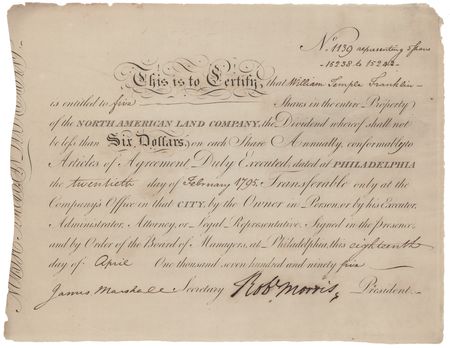 No. 1139 representing 5 shares
15238 to 15242
This is to Certify, that William Temple Franklin
is entitled to five Shares in the entire Property
of the NORTH AMERICAN LAND COMPANY, the Dividend whereof shall not
be less than Six Dollars, on each Share Annually, conformably to
Articles of Agreement Duly Executed, dated at PHILADELPHIA
the twentieth day of February 1795, Transferable only at the
Company's Office in that CITY, by the Owner in Person, or by his Executor,
Administrator, Attorney, or Legal Representative. Signed in the presence,
and by Order of the Board of Managers, at Philadelphia, this eighteenth
day of April One thousand seven hundred and ninety five
James Marshall Secretary Robt. Morris, President.